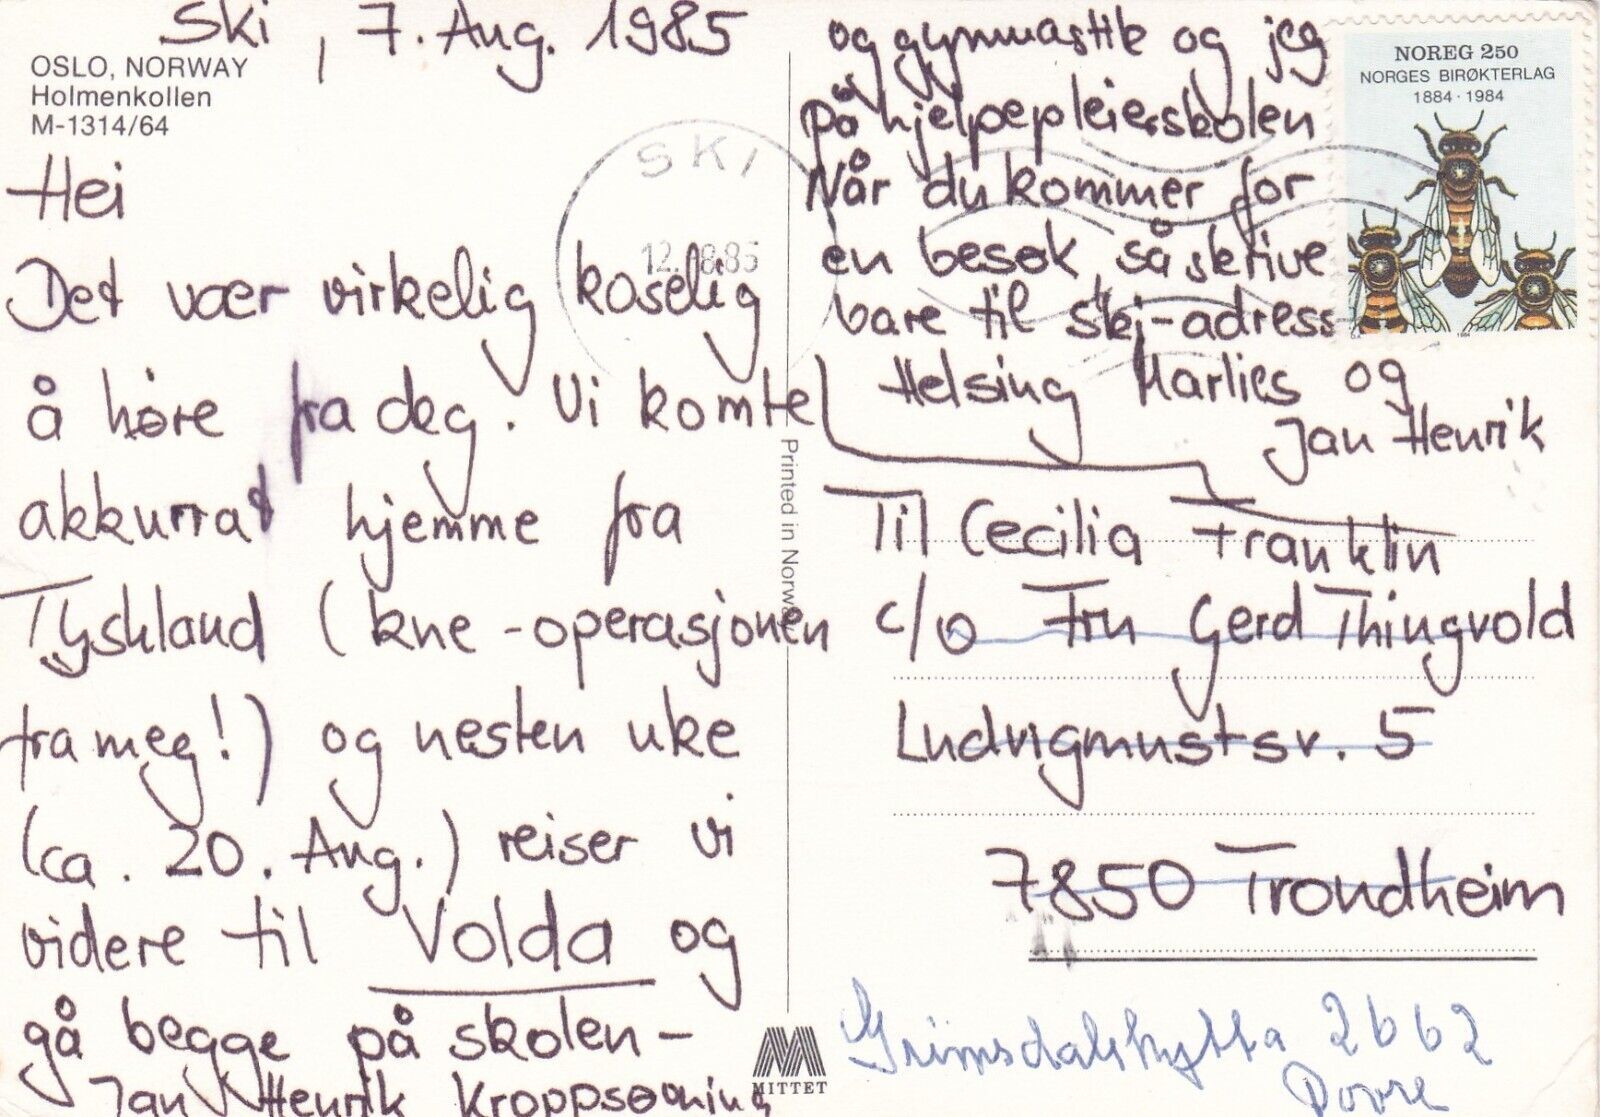 OSLO, NORWAY
Holmenkollen
M-1314/64
Ski, 7. Aug. 1985
Hei
Det vær virkelig koselig
å høre fra deg. Vi komte
akkurrat hjemme fra
Tyskland (kne-operasjonen
fra meg!) og nesten uke
(ca. 20. Aug.) reiser vi
videre til Volda og
gå begge på skolen-
Jan Henrik Kroppsøvning
og gymnastik og jeg
på hjelpepleierskolen
Når du kommer for
en besøk, så skrive
bare til Ski-adress
Helsing Marlies og
Jan Henrik
NOREG 250
NORGES BIRØKTERLAG
1884 · 1984
1984
SKI
12. 8.85
Printed in Norway
Til Cecilia Franklin
c/o Fru Gerd Thingvold
Ludvigmustsv. 5
7850 Trondheim
Grimsdalshytta 2662
Dovre
MITTET